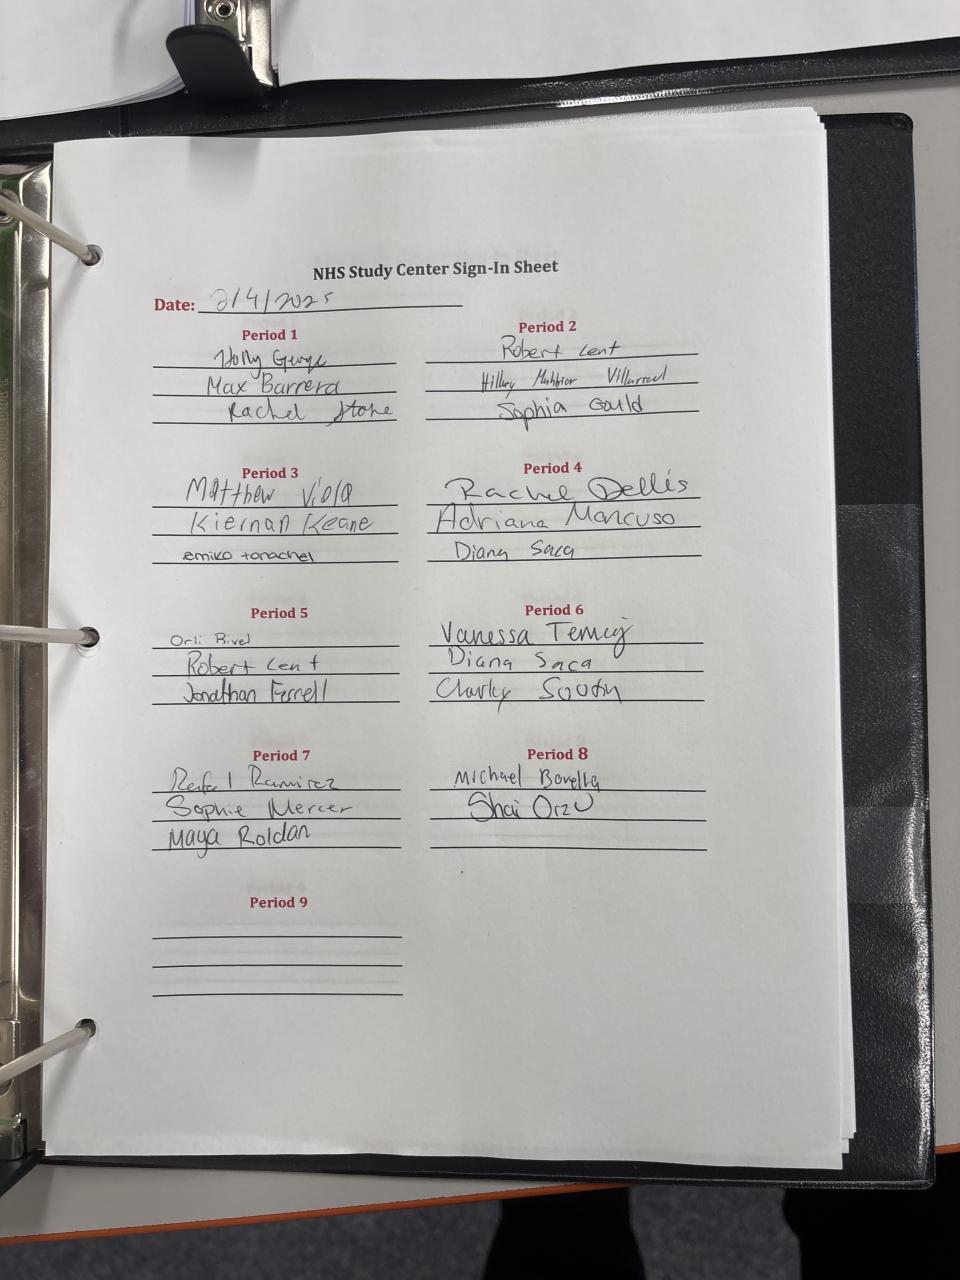 NHS Study Center Sign-In Sheet
Date: 2/4/2025
Period 1
Holly George
Max Barrera
Rachel Stone
Period 2
Robert Lent
Hillary Villarreal
Sophia Gould
Period 3
Matthew Viola
Kiernan Keane
emiko
Period 4
Rachel Dellis
Adriana Mancuso
Diana Saca
Period 5
Orli
Robert Lent
Jonathan Ferrell
Period 6
Vanessa
Diana Saca
Charley
Period 7
Rafael Ramirez
Sophie Mercer
Maya Roldan
Period 8
Michael
Shai Orzu
Period 9